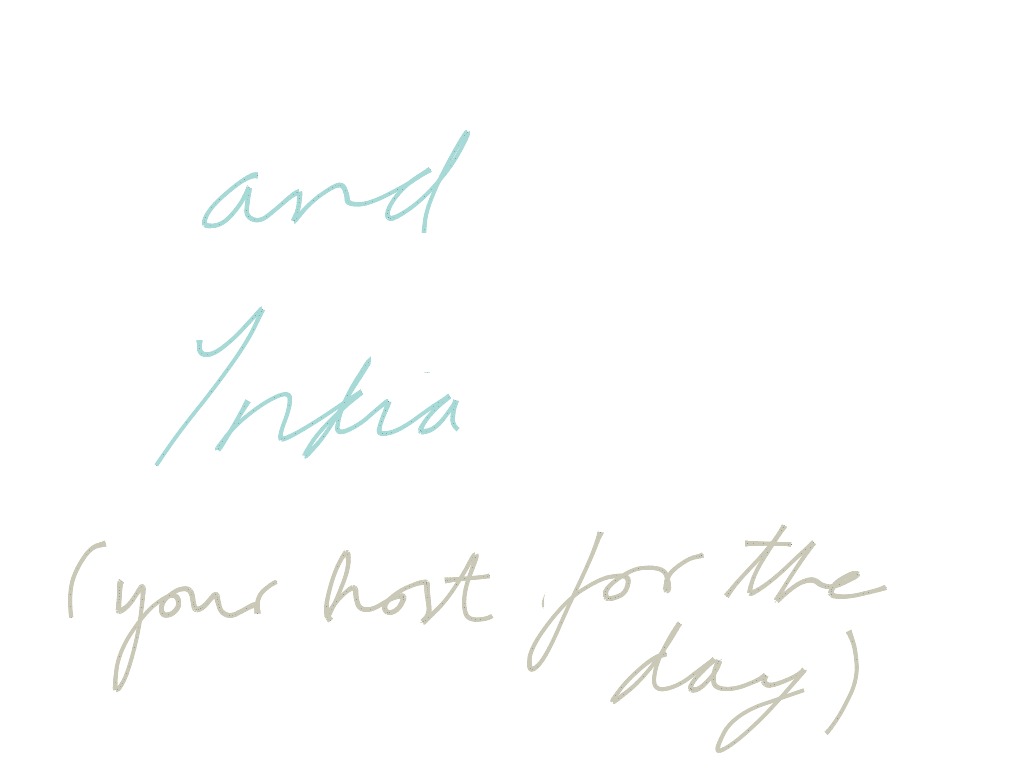 and
India
(your host for the
day)